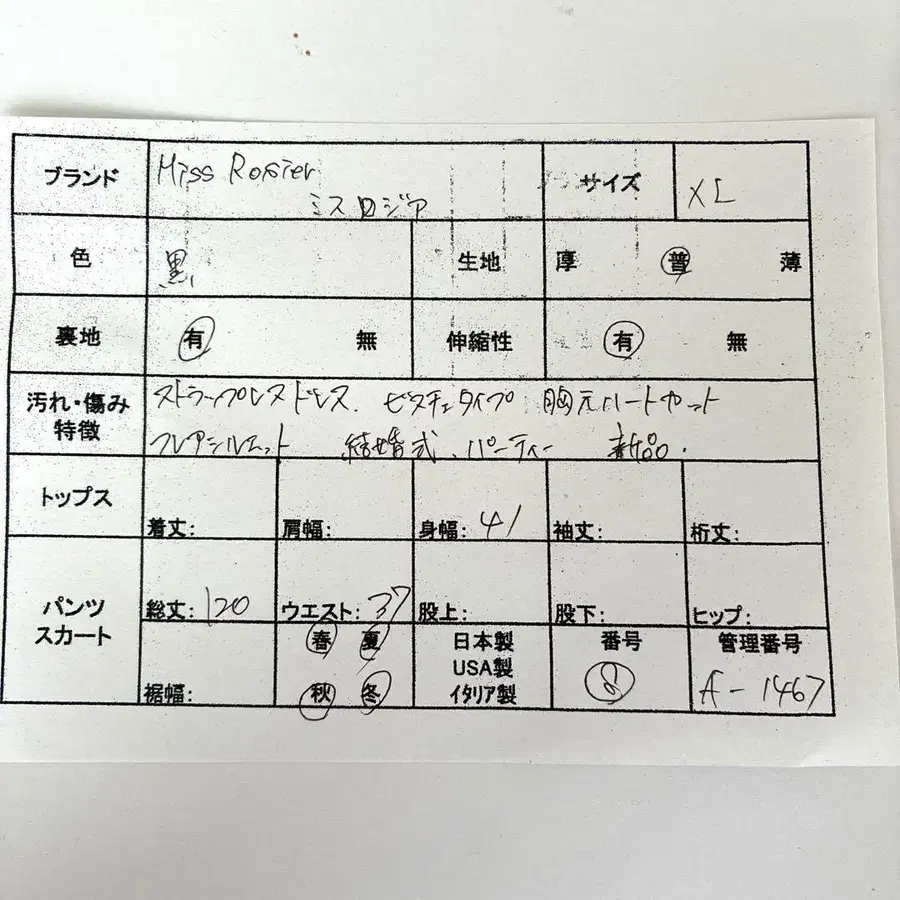 ブランド Miss Rosier サイズ XL
ミスロジア
色 黒 生地 厚 普 薄
裏地 有 無 伸縮性 有 無
汚れ・傷み ストラップレスドレス、ビスチェタイプ 胸元ハートカット
特徴 フレアシルエット 結婚式、パーティー 新品.
トップス 着丈: 肩幅: 身幅: 41 袖丈: 裄丈:
パンツ 総丈: 120 ウエスト: 37 股上: 股下: ヒップ:
スカート 裾幅: 春 夏 日本製 番号 管理番号
USA製
秋 冬 イタリア製 8 A-1467